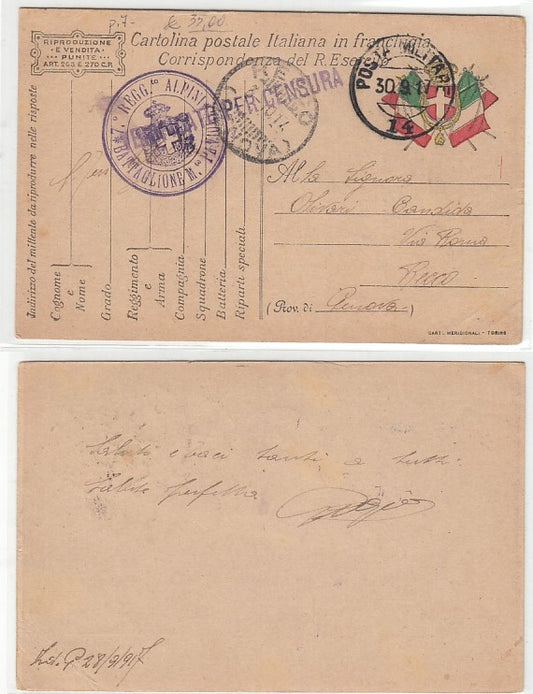 p.7-
32,00
RIPRODUZIONE
E VENDITA
PUNITE
ART. 265 E 270 C.P.
Cartolina postale Italiana in franchigia
Corrispondenza del R. Esercito
POSTA MILITARE
30.9.17
14
PER CENSURA
7° REGG.to ALPINI
BATTAGLIONE M.te
Indirizzo del mittente da riprodurre nelle risposte
Cognome
e
Nome
Grado
Reggimento
e
Arma
Compagnia
Squadrone
Batteria
Riparti speciali
Alla Signora
Olivari Candida
Via Roma
Recco
(Prov. di Genova)
CART. MERIDIONALI - TORINO
Saluti e baci tanti a tutti.
Salute perfetta
Z.d.G 28/9/917